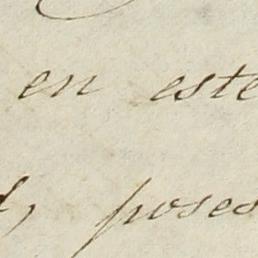 en este
poses